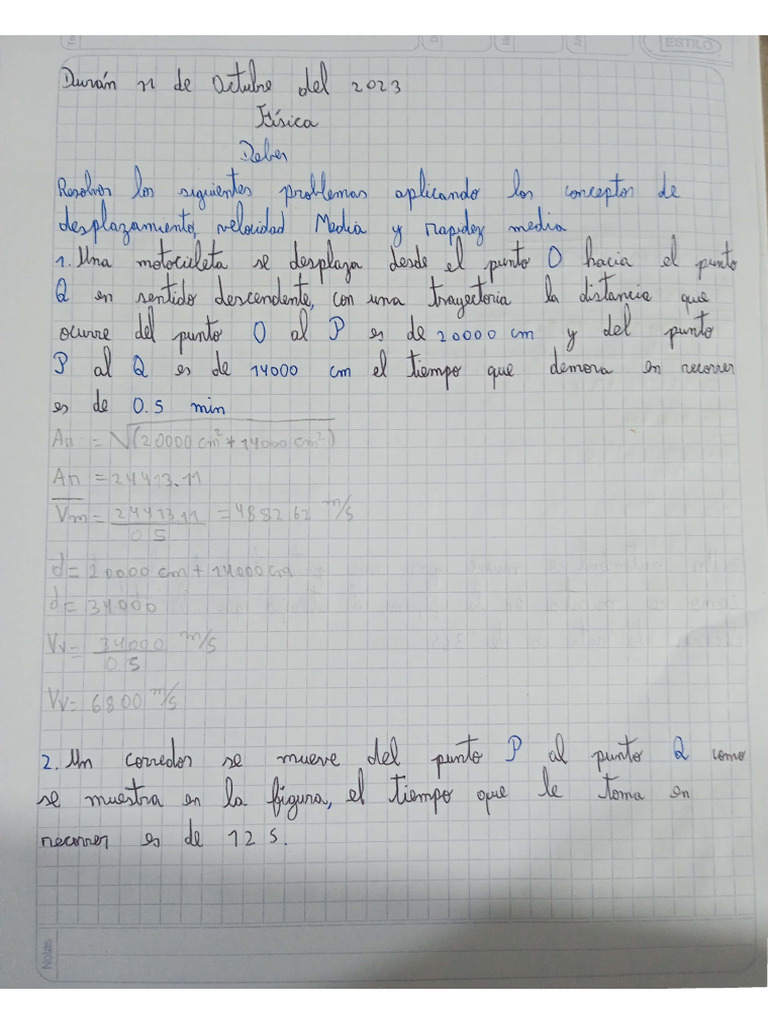 ESTILO
Durán 11 de Octubre del 2023
Física
Deber
Resolver los siguientes problemas aplicando los conceptos de
desplazamiento, velocidad Media y rapidez media
1. Una motocicleta se desplaza desde el punto O hacia el punto
Q en sentido descendente, con una trayectoria la distancia que
ocurre del punto O al P es de 20000 cm y del punto
P al Q es de 14000 cm el tiempo que demora en recorrer
es de 0.5 min
An = √(20000 cm² + 14000 cm²)
An = 24413.11
Vm = 2441311 / 05 = 4882 62 m/s
d = 20000 cm + 14000 cm
d = 34000
Vv = 34000 / 05 m/s
Vv = 6800 m/s
2. Un corredor se mueve del punto P al punto Q como
se muestra en la figura, el tiempo que le toma en
recorrer es de 12 s.
Notas